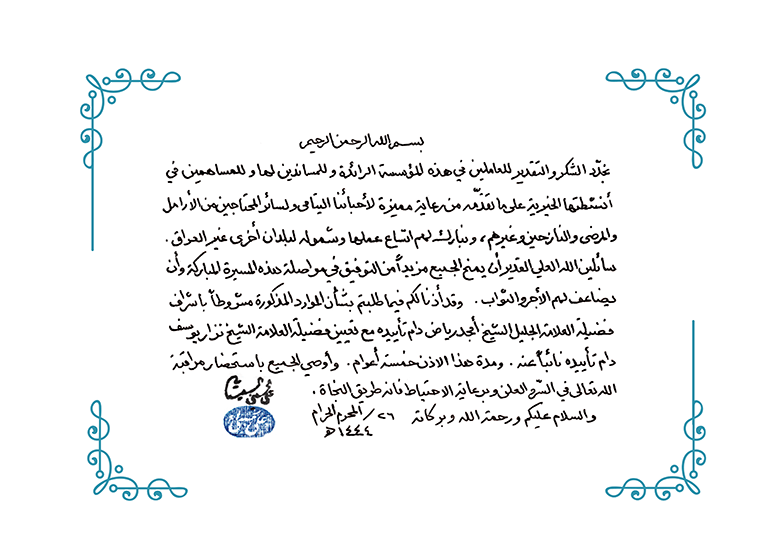 بسم الله الرحمن الرحيم
نجدّد الشكر والتقدير للعاملين في هذه المؤسسة الرائدة وللمساندين لها وللمساهمين في
أنشطتها الخيرية على ما تقدّمه من رعاية مميزة لأحبائنا اليتامى ولسائر المحتاجين من الأرامل
والمرضى والنازحين وغيرهم، ونبارك لهم اتساع عملها وشموله لبلدان أخرى غير العراق.
سائلين الله العلي القدير أن يمنح الجميع مزيداً من التوفيق في مواصلة هذه المسيرة المباركة وأن
يضاعف لهم الأجر والثواب. وقد أذنا لكم فيما طلبتم بشأن الموارد المذكورة مشروطاً باشراف
فضيلة العلامة الجليل الشيخ أمجد رياض دام تأييده مع تعيين فضيلة العلامة الشيخ نزار يوسف
دام تأييده نائباً عنه. ومدة هذا الاذن خمسة أعوام. وأوصي الجميع باستحضار مراقبة
الله تعالى في السرّ والعلن وبرعاية الاحتياط فانه طريق النجاة.
والسلام عليكم ورحمة الله وبركاته ٢٦/المحرم الحرام
١٤٤٤هـ